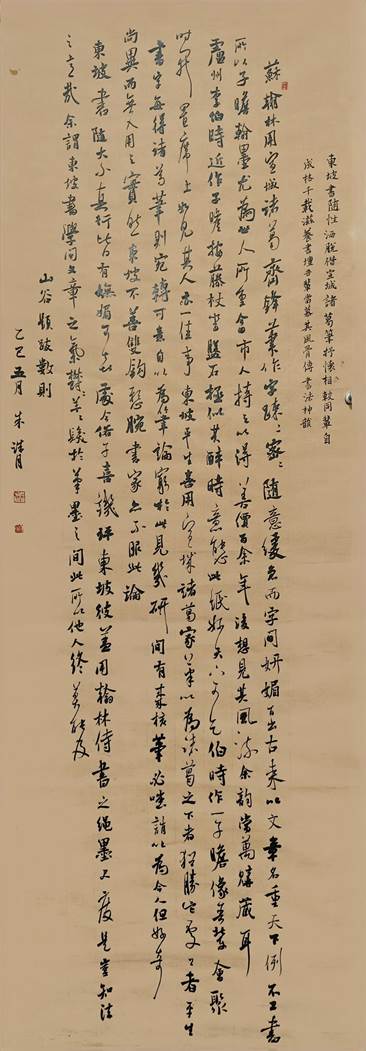 東坡書隨性洒脫借宣城諸葛筆抒懷相較同輩自
成格千載滋養書壇吾輩當慕其風骨傳書法神韻
蘇翰林用宣城諸葛齊鋒筆作字疎疎密密隨意緩急而字間妍媚百出古來以文章名重天下例不工書
所以子瞻翰墨尤為世人所重今市人持之以得善價百余年後想見其風流余韻當萬購藏耳
廬州李伯時近作子瞻按藤杖坐盤石極似其醉時意態此紙妙天下可乞伯時作一子瞻像吾輩會聚
時開置席上如見其人亦一佳事東坡平生喜用宣城諸葛家筆以為諸葛之下者猶勝它處工者平生
書字每得諸葛筆則宛轉可意自以為筆論窮於此見幾研間有棗核筆必嗤誚以為今人但好奇
尚異而無入用之實然東坡不善雙鈎懸腕書家亦不服此論
東坡書隨大小真行皆有嫵媚可喜處今俗子喜譏評東坡彼蓋用翰林侍書之繩墨尺度是豈知法
之意哉余謂東坡書學問文章之氣鬱鬱芊芊發於筆墨之間此所以他人終莫能及
山谷題跋數則
乙巳五月 朱月